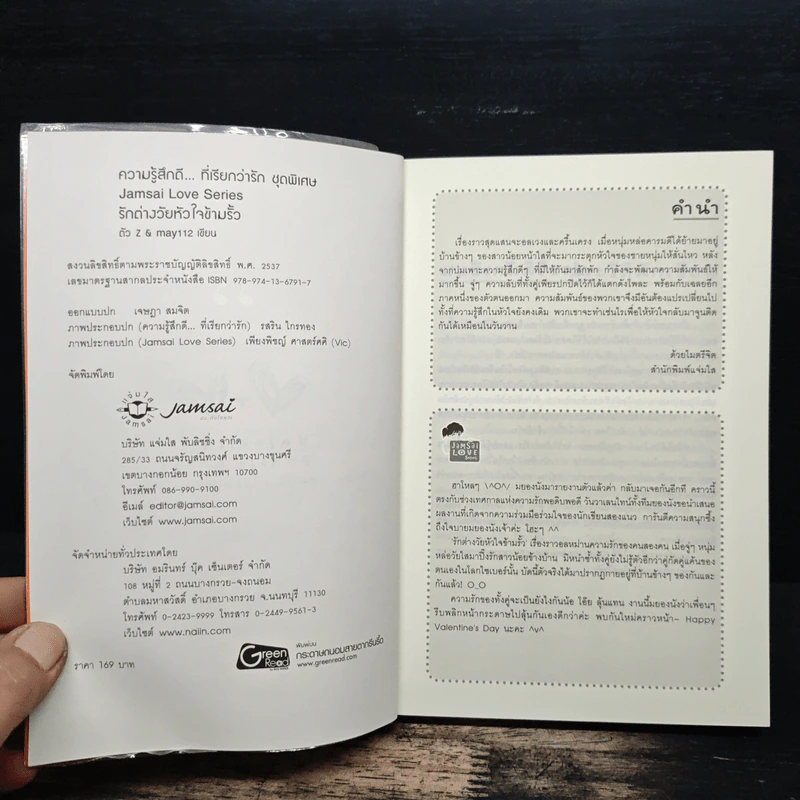 ความรู้สึกดี... ที่เรียกว่ารัก ชุดพิเศษ
Jamsai Love Series
รักต่างวัยหัวใจข้ามรั้ว
ตัว Z & may112 เขียน
สงวนลิขสิทธิ์ตามพระราชบัญญัติลิขสิทธิ์ พ.ศ. 2537
เลขมาตรฐานสากลประจำหนังสือ ISBN 978-974-13-6791-7
ออกแบบปก เจษฎา สมจิต
ภาพประกอบปก (ความรู้สึกดี... ที่เรียกว่ารัก) รสริน ไกรทอง
ภาพประกอบปก (Jamsai Love Series) เพียงพิชญ์ ศาสตร์ศศิ (Vic)
จัดพิมพ์โดย
แจ่มใส
Jamsai
jamsai
บริษัท แจ่มใส พับลิชชิ่ง จำกัด
285/33 ถนนจรัญสนิทวงศ์ แขวงบางขุนศรี
เขตบางกอกน้อย กรุงเทพฯ 10700
โทรศัพท์ 086-990-9100
อีเมล์ editor@jamsai.com
เว็บไซต์ www.jamsai.com
จัดจำหน่ายทั่วประเทศโดย
บริษัท อมรินทร์ บุ๊ค เซ็นเตอร์ จำกัด
108 หมู่ที่ 2 ถนนบางกรวย-จงถนอม
ตำบลมหาสวัสดิ์ อำเภอบางกรวย จ.นนทบุรี 11130
โทรศัพท์ 0-2423-9999 โทรสาร 0-2449-9561-3
เว็บไซต์ www.naiin.com
ราคา 169 บาท
Green Read
พิมพ์บน
กระดาษถนอมสายตากรีนรี้ด
www.greenread.com
คำนำ
เรื่องราวสุดแสนจะอลเวงและครื้นเครง เมื่อหนุ่มหล่อคารมดีได้ย้ายมาอยู่
บ้านข้างๆ ของสาวน้อยหน้าใสที่จะมากระตุกหัวใจของชายหนุ่มให้สั่นไหว หลัง
จากบ่มเพาะความรู้สึกดีๆ ที่มีให้กันมาสักพัก กำลังจะพัฒนาความสัมพันธ์ให้
มากขึ้น จู่ๆ ความลับที่ทั้งคู่เพียรปกปิดไว้ก็ได้แตกดังโพละ พร้อมกับเฉลยอีก
ภาคหนึ่งของตัวตนออกมา ความสัมพันธ์ของพวกเขาจึงมีอันต้องแปรเปลี่ยนไป
ทั้งที่ความรู้สึกในหัวใจยังคงเดิม พวกเขาจะทำเช่นไรเพื่อให้หัวใจกลับมาจูนติด
กันได้เหมือนในวันวาน
ด้วยไมตรีจิต
สำนักพิมพ์แจ่มใส
JAMSAI
LOVE
Series
ฮาโหลๆ \^O^/ มยองนังมารายงานตัวแล้วค่า กลับมาเจอกันอีกที คราวนี้
ตรงกับช่วงเทศกาลแห่งความรักพอดิบพอดี วันวาเลนไทน์ทั้งทีมยองนังขอนำเสนอ
ผลงานที่เกิดจากความร่วมมือร่วมใจของนักเขียนสองแนว การันตีความสนุกซึ้ง
ถึงใจบายมยองนังเจ้าค่ะ โฮะๆ ^^
รักต่างวัยหัวใจข้ามรั้ว เรื่องราวอลหม่านความรักของคนสองคน เมื่อจู่ๆ หนุ่ม
หล่อวัยใสมาปิ๊งรักสาวน้อยข้างบ้าน มิหนำซ้ำทั้งคู่ยังไม่รู้ตัวอีกว่าคู่กัดคู่แค้นของ
ตนเองในโลกไซเบอร์นั้น บัดนี้ตัวจริงได้มาปรากฏกายอยู่ที่บ้านข้างๆ ของกันและ
กันแล้ว! O_O
ความรักของทั้งคู่จะเป็นยังไงกันน้อ โอ๊ย ลุ้นแทน งานนี้มยองนังว่าเพื่อนๆ
รีบพลิกหน้ากระดาษไปลุ้นกันเองดีกว่าค่ะ พบกันใหม่คราวหน้า~ Happy
Valentine's Day นะคะ ^v^